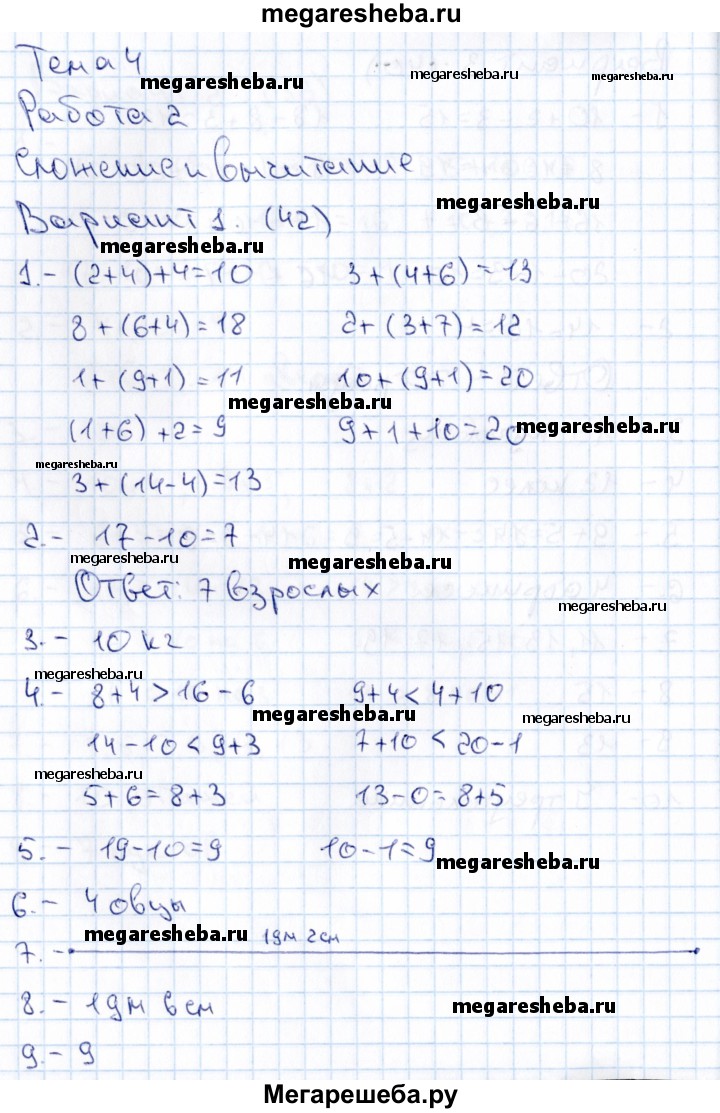 megaresheba.ru
Тема 4
megaresheba.ru megaresheba.ru megaresheba.ru
Работа 2
Сложение и вычитание
megaresheba.ru
Вариант 1. (42)
megaresheba.ru
1.- (2+4)+4=10 3+(4+6)=13
8+(6+4)=18 2+(3+7)=12
1+(9+1)=11 10+(9+1)=20
megaresheba.ru
(1+6)+2=9 9+1+10=20
megaresheba.ru
megaresheba.ru
3+(14-4)=13
2.- 17-10=7
megaresheba.ru megaresheba.ru
Ответ: 7 взрослых
megaresheba.ru
3.- 10 кг
megaresheba.ru
4.- 8+4>16-6 9+4<4+10
megaresheba.ru megaresheba.ru
14-10<9+3 7+10<20-1
megaresheba.ru
5+6=8+3 13-0=8+5
5.- 19-10=9 10-1=9
megaresheba.ru
6.- 4 овцы
megaresheba.ru 1дм 2см
7.-
8.- 1дм 6см
megaresheba.ru
9.- 9
Мегарешеба.ру